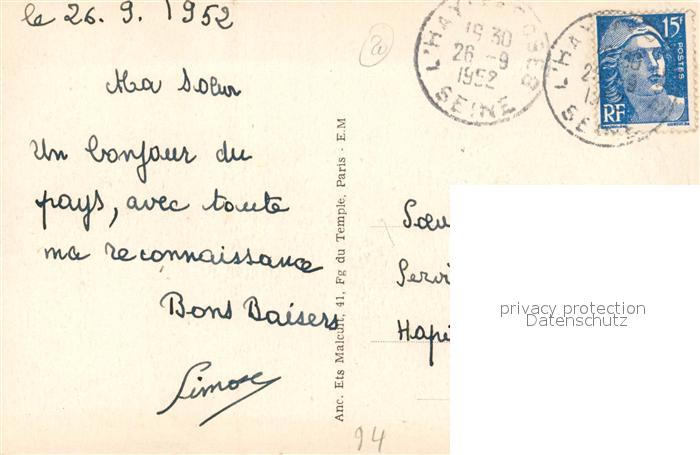 le 26. 9. 1952
Ma Soeur
Un bonjour du
pays, avec toute
ma reconnaissance
Bons Baisers
Anc. Ets Malcuit, 41, Fg du Temple, Paris - E.M
94
L'HAY
19 30
26 - 9
1952
SEINE
L'HAY
SEINE
15F
POSTES
RF
Soeu
Servi
Hapi
privacy protection
Datenschutz